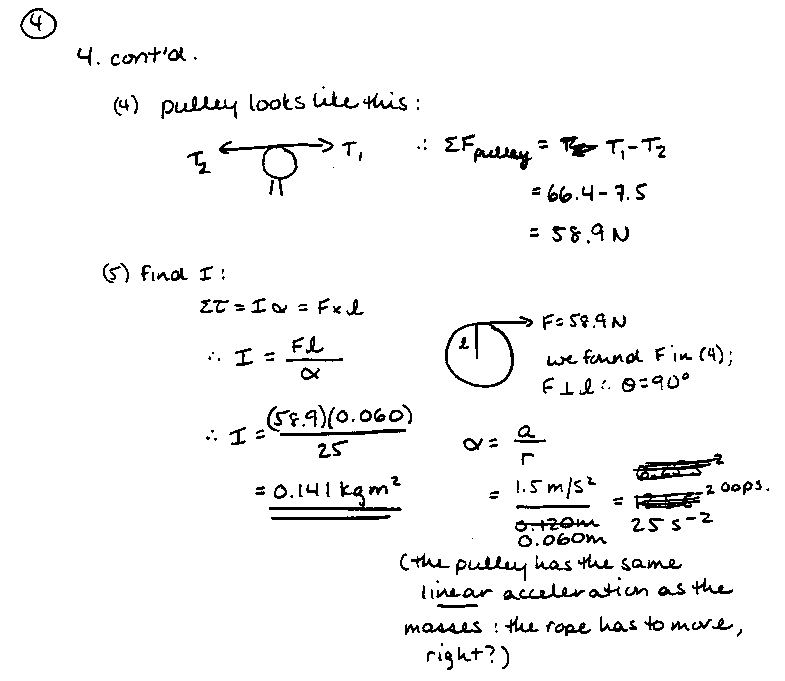 4
4. cont'd.
(4) pulley looks like this:
T₂ T₁ ∴ ΣFpulley = T₁-T₂
= 66.4-7.5
= 58.9 N
(5) Find I:
Στ = Iα = F×l
∴ I = Fl/α
l F=58.9N
we found F in (4);
F⊥l ∴ θ=90°
∴ I = (58.9)(0.060)/25
= 0.141 kgm²
α = a/r
= 1.5 m/s² / 0.120m 0.060m = 25 s⁻² oops.
(the pulley has the same
linear acceleration as the
masses: the rope has to move,
right?)